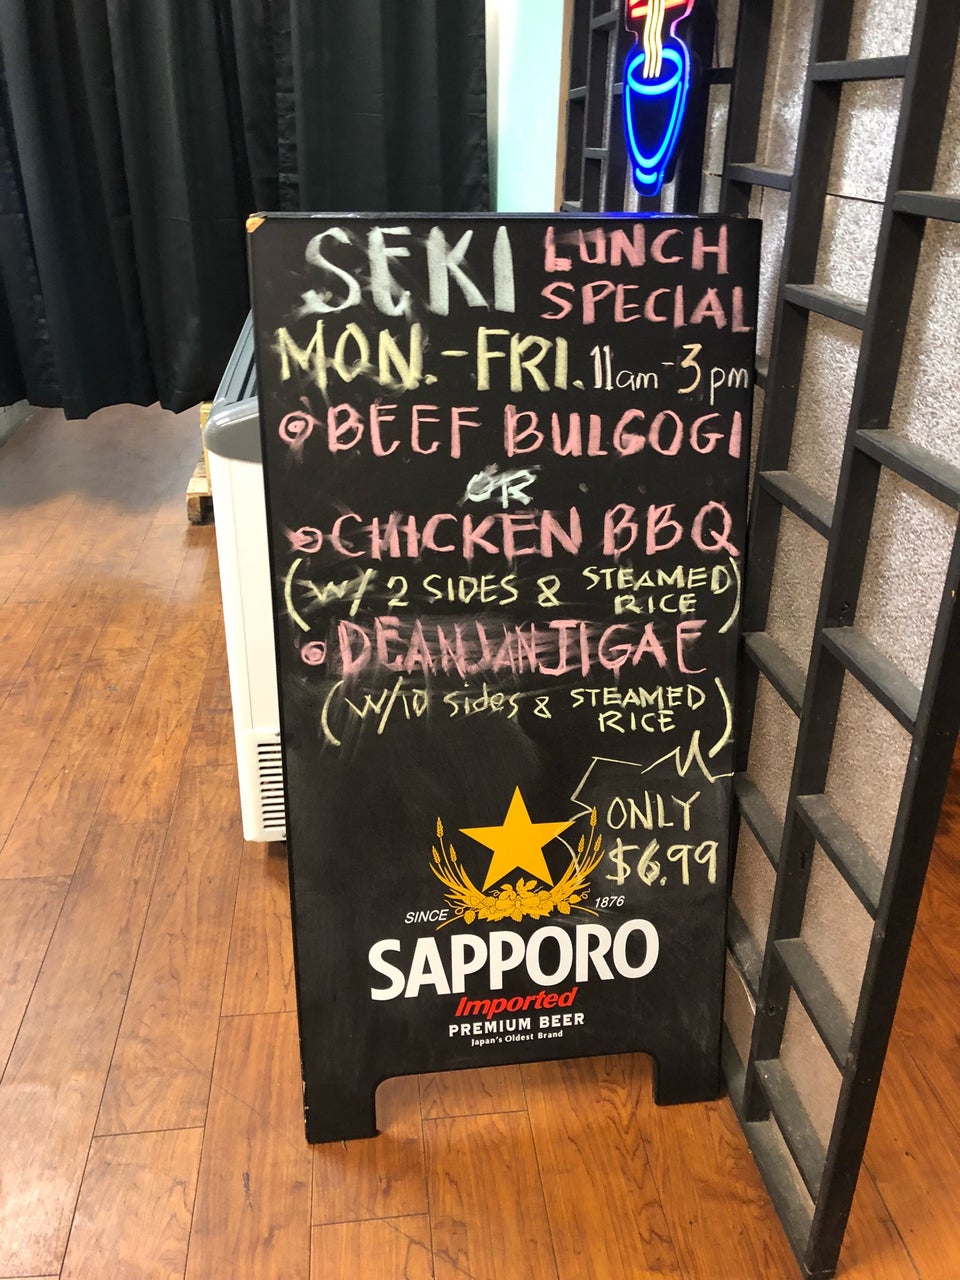 SEKI LUNCH SPECIAL
MON.-FRI. 11am-3pm
BEEF BULGOGI
OR
CHICKEN BBQ
(W/ 2 SIDES & STEAMED RICE)
DEANJANJIGAE
(W/10 sides & STEAMED RICE)
ONLY
$6.99
SINCE 1876
SAPPORO
Imported
PREMIUM BEER
Japan's Oldest Brand